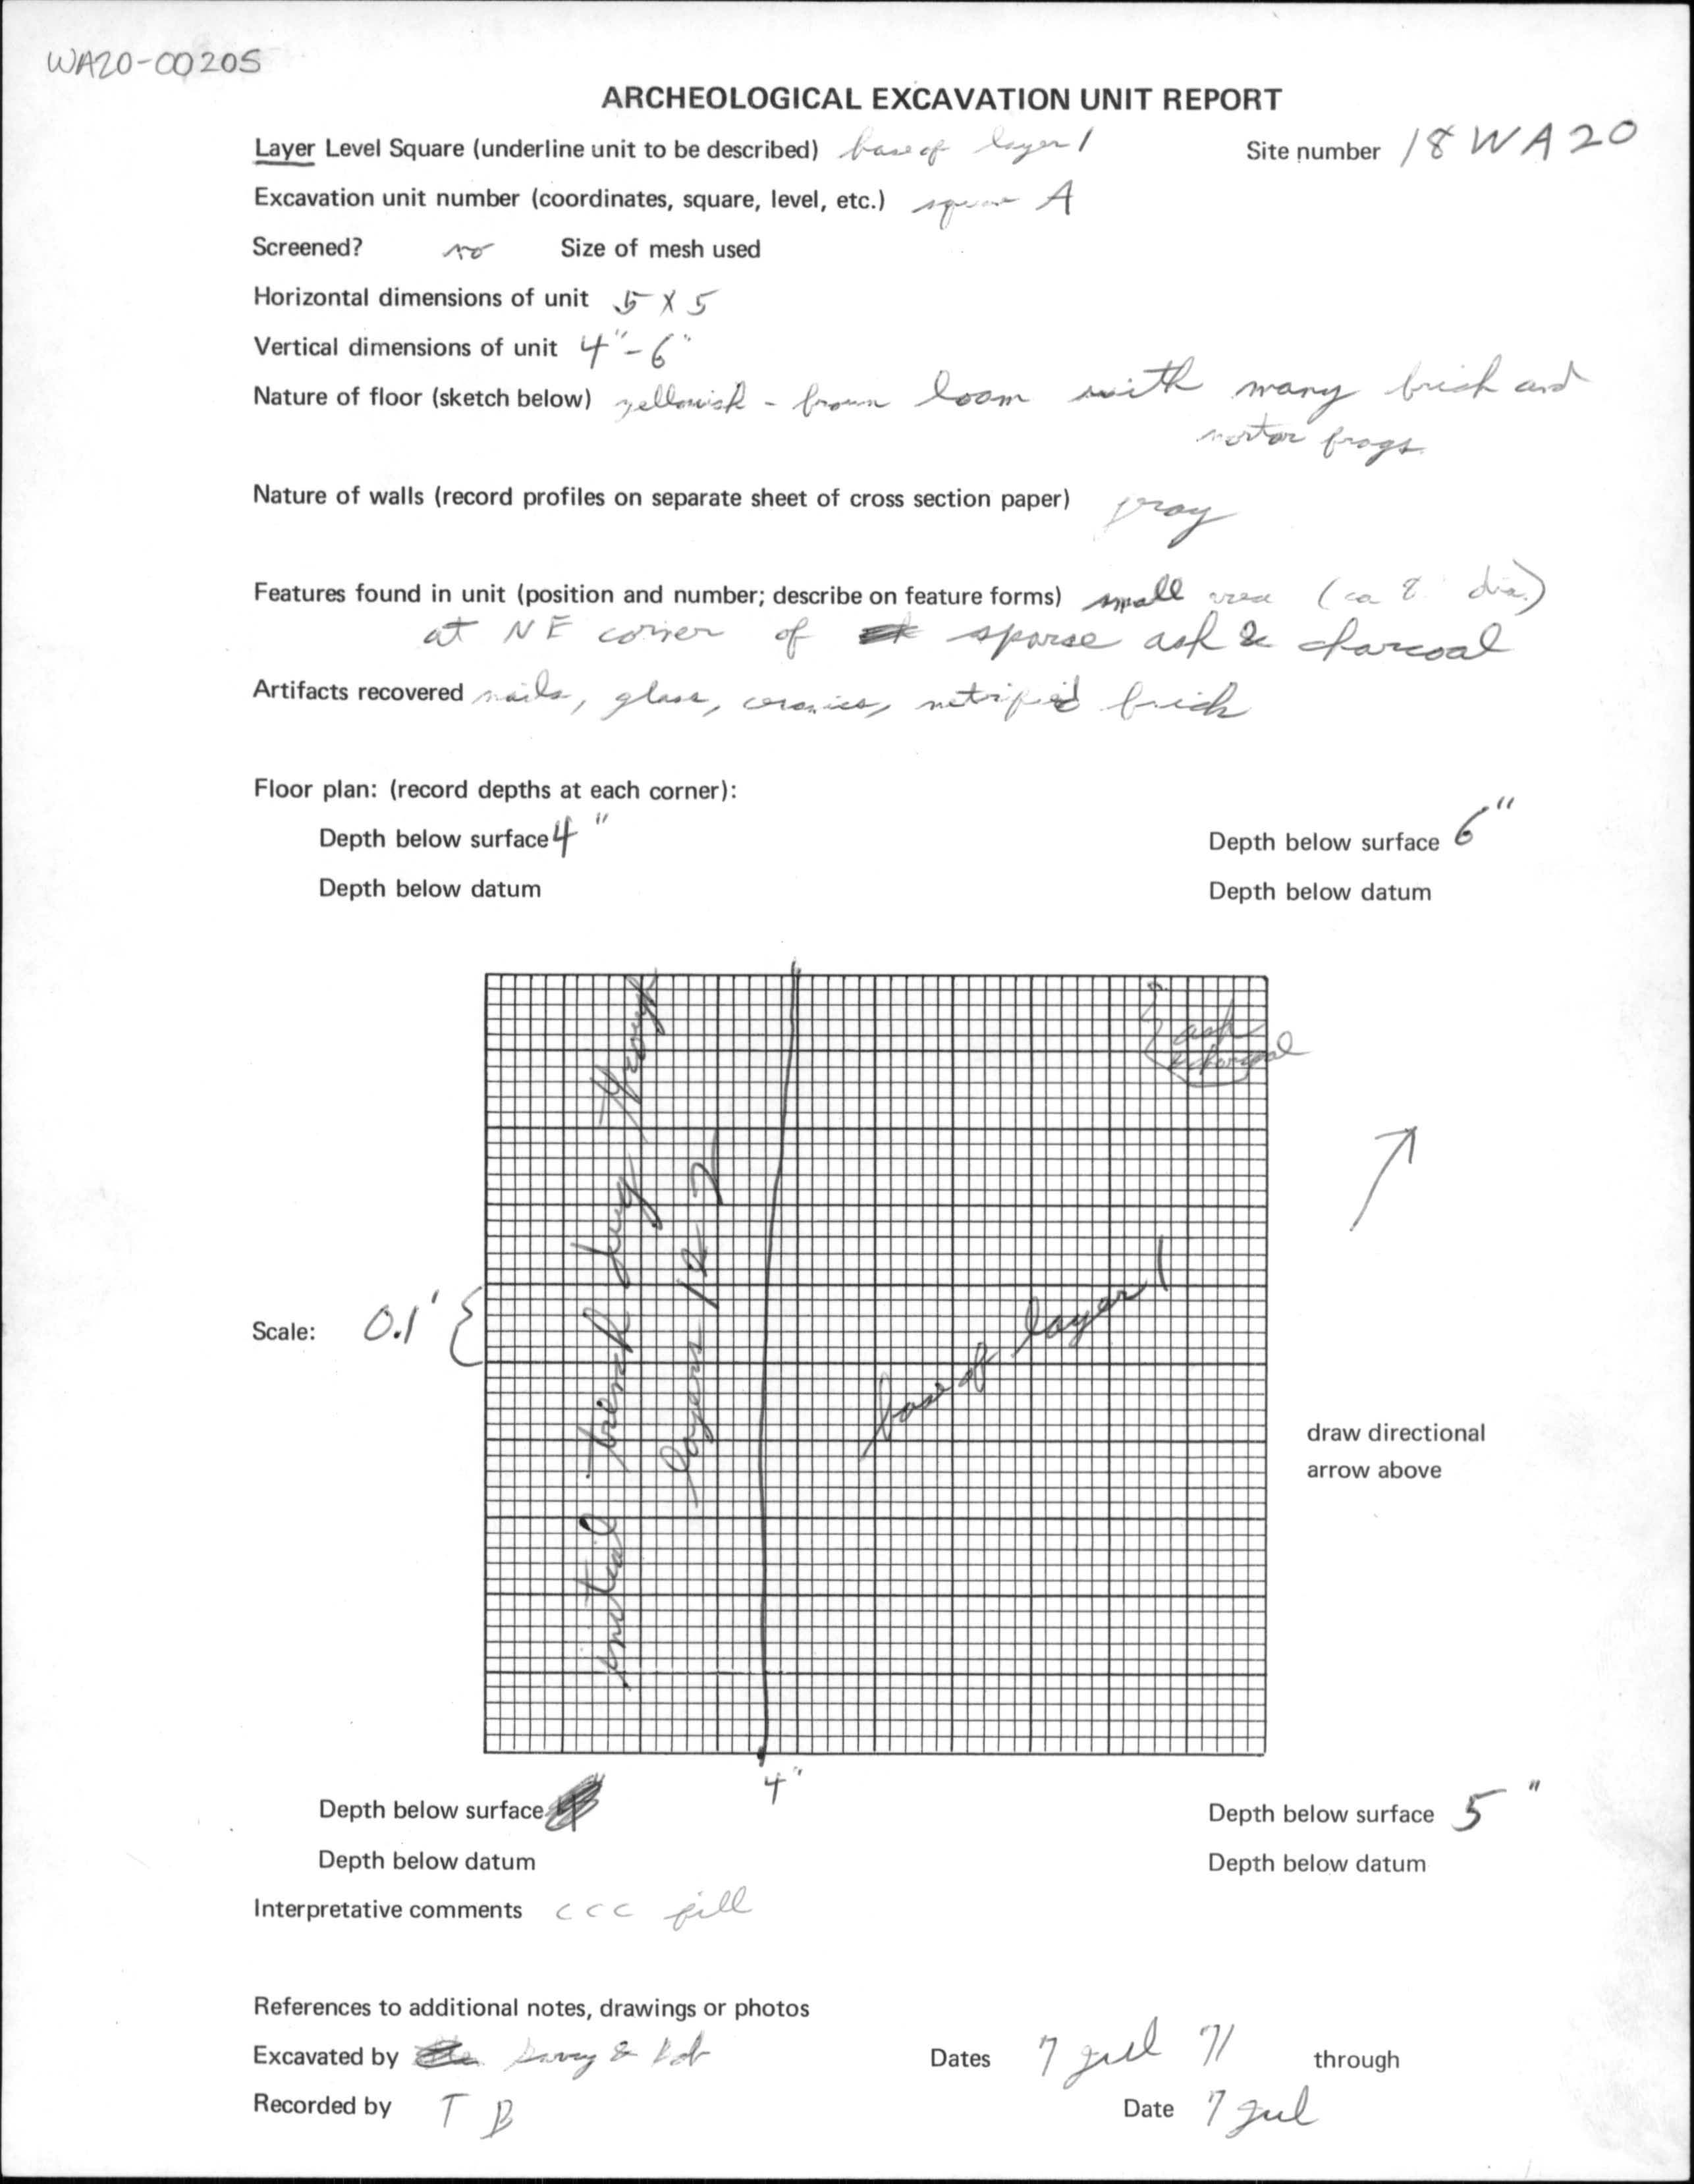 WA20-00205
ARCHEOLOGICAL EXCAVATION UNIT REPORT
Layer Level Square (underline unit to be described) base of layer 1
Site number 18 WA 20
Excavation unit number (coordinates, square, level, etc.) square A
Screened? no Size of mesh used
Horizontal dimensions of unit 5 x 5
Vertical dimensions of unit 4" - 6"
Nature of floor (sketch below) yellowish - brown loam with many brick and
mortar frags.
Nature of walls (record profiles on separate sheet of cross section paper)
Features found in unit (position and number; describe on feature forms) small area (ca 8" dia.)
at NE corner of sparse ash & charcoal
Artifacts recovered nails, glass, ceramics, vetrified brick
Floor plan: (record depths at each corner):
Depth below surface 4"
Depth below surface 6"
Depth below datum
Depth below datum
ash
& charcoal
initial trench dug through
layers 1 & 2
base of layer 1
Scale: 0.1' {
draw directional
arrow above
4"
Depth below surface
Depth below surface 5"
Depth below datum
Depth below datum
Interpretative comments CCC fill
References to additional notes, drawings or photos
Excavated by & Bob
Dates 7 Jul 71 through
Recorded by T B
Date 7 Jul